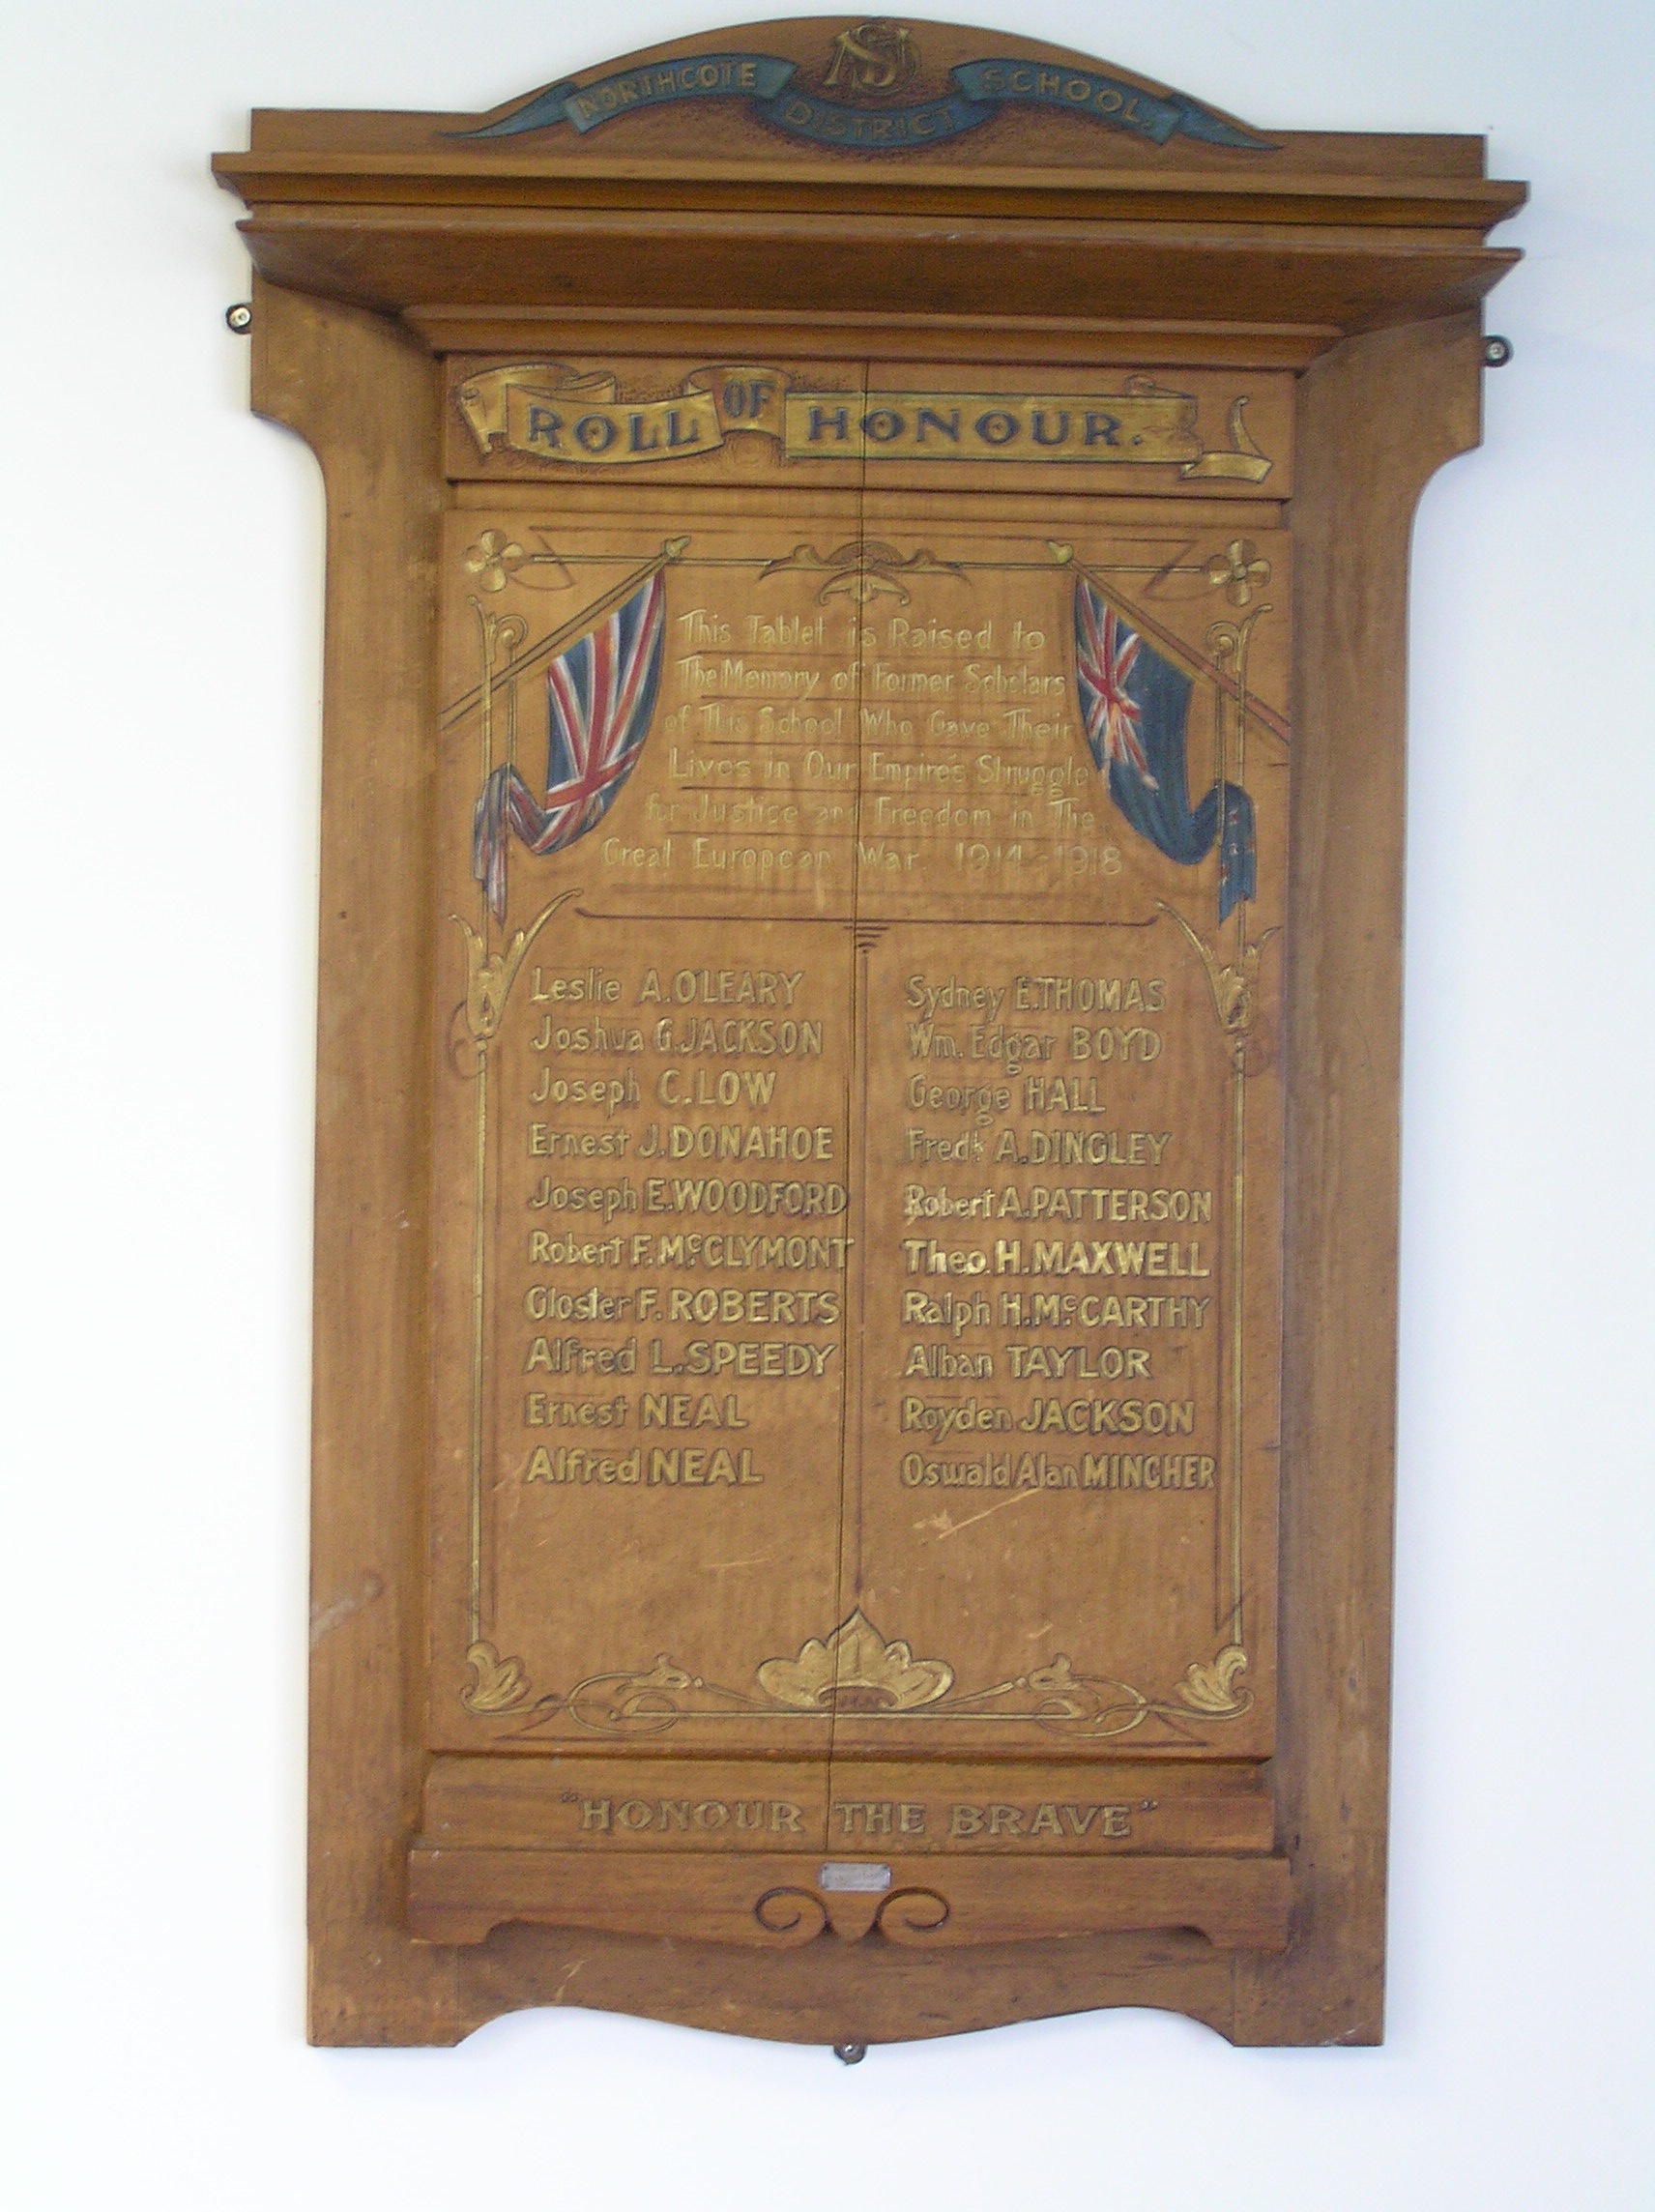 NSD
NORTHCOTE DISTRICT SCHOOL.
ROLL OF HONOUR.
This Tablet is Raised to
The Memory of Former Scholars
of This School Who Gave Their
Lives in Our Empire's Struggle
for Justice and Freedom in The
Great European War. 1914-1918
Leslie A. O'LEARY
Joshua G. JACKSON
Joseph C. LOW
Ernest J. DONAHOE
Joseph E. WOODFORD
Robert F. McCLYMONT
Gloster F. ROBERTS
Alfred L. SPEEDY
Ernest NEAL
Alfred NEAL
Sydney E. THOMAS
Wm. Edgar BOYD
George HALL
Fredk A. DINGLEY
Robert A. PATTERSON
Theo. H. MAXWELL
Ralph H. McCARTHY
Alban TAYLOR
Royden JACKSON
Oswald Alan MINCHER
"HONOUR THE BRAVE"